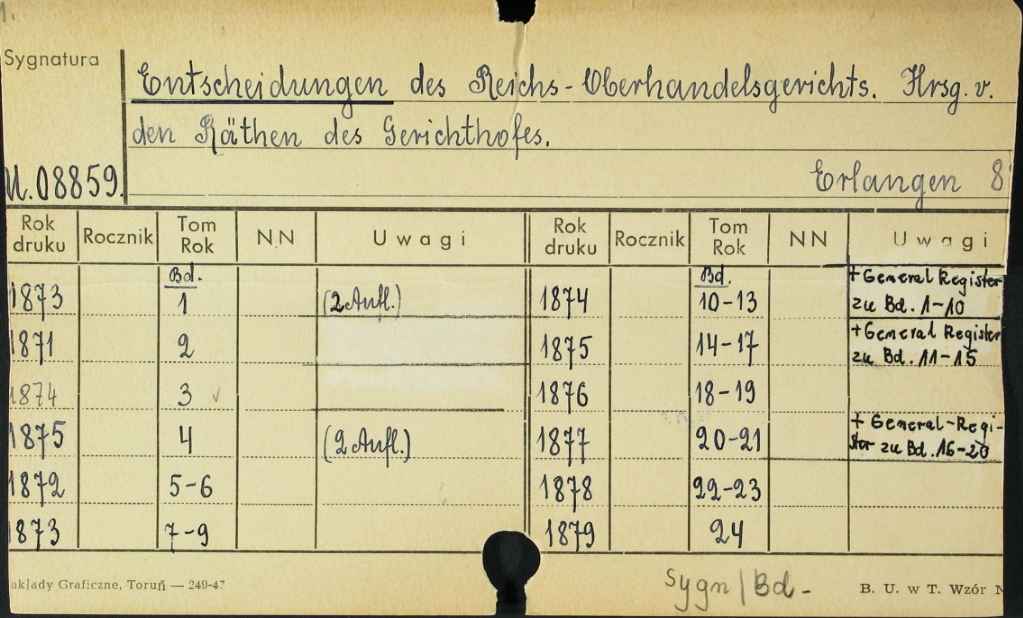 1.
Sygnatura
Entscheidungen des Reichs-Oberhandelsgerichts. Hrsg. v.
den Räthen des Gerichthofes.
U.08859.
Erlangen 8
Rok druku Rocznik Tom Rok N.N Uwagi Rok druku Rocznik Tom Rok NN Uwagi
Bd. Bd. + General Register
1873 1 (2 Aufl.) 1874 10-13 zu Bd. 1-10
1871 2 1875 14-17 + General Register zu Bd. 11-15
1874 3 v 1876 18-19
1875 4 (2 Aufl.) 1877 20-21 + General-Regi-
ster zu Bd. 16-20
1872 5-6 1878 22-23
1873 7-9 1879 24
akłady Graficzne, Toruń — 249-47
Sygn/Bd-
B. U. w T. Wzór N